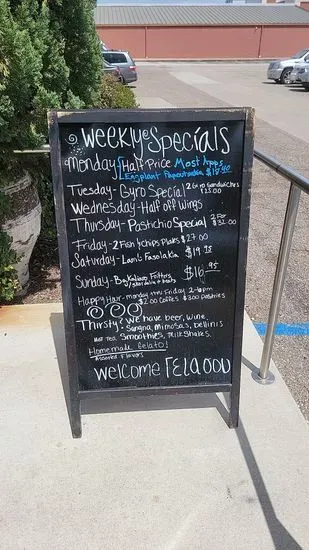 Weekly Specials
Monday Half Price Most Apps
Eggplant Papoutsakia $18.40
Tuesday - Gyro Special 2 Gyro Sandwiches $25.00
Wednesday - Half off Wings
Thursday - Pastichio Special 2 For $32.00
Friday - 2 Fish & chips Plates $27.00
Saturday - Lamb Fasolakia $19.95
Sunday - Bakaliaro Fritters $16.95
w/skordalia + beets
Happy Hour - monday thru Friday 2-6pm
$2.00 Coffees $3.00 Pastries
Thirsty? We have beer, Wine,
Sangria, Mimosas, Bellinis
Hot Tea, Smoothies, Milkshakes.
Homemade Gelato!
Assorted Flavors
Welcome ΓΕΛΑΟΟυ